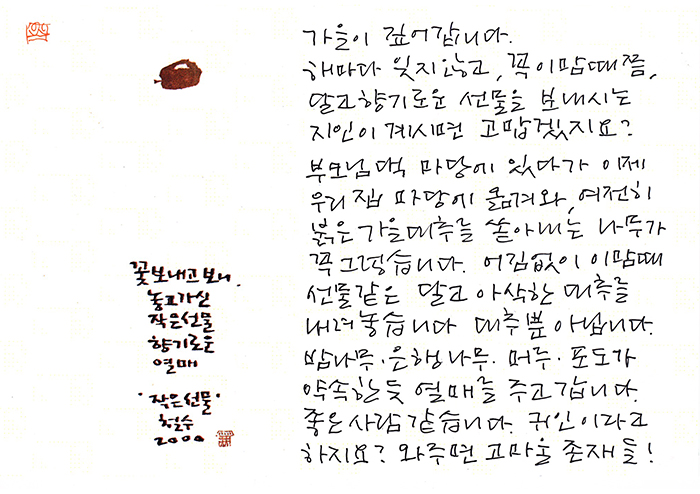 꽃보내고보니,
놓고가신
작은선물
향기로운
열매
·작은선물·
철수
2000
가을이 깊어갑니다.
해마다 잊지않고, 꼭 이맘때쯤,
달고향기로운 선물을 보내시는
지인이 계시면 고맙겠지요?
부모님댁 마당에 있다가 이제
우리집 마당에 옮겨와, 여전히
붉은 가을대추를 쏟아내는 나무가
꼭 그렇습니다. 어김없이 이맘때
선물같은 달고 아삭한 대추를
내려놓습니다 대추뿐 아닙니다.
밤나무·은행나무·머루·포도가
약속한듯 열매를 주고갑니다.
좋은사람같습니다. 귀인이라고
하지요? 와주면 고마울 존재들!